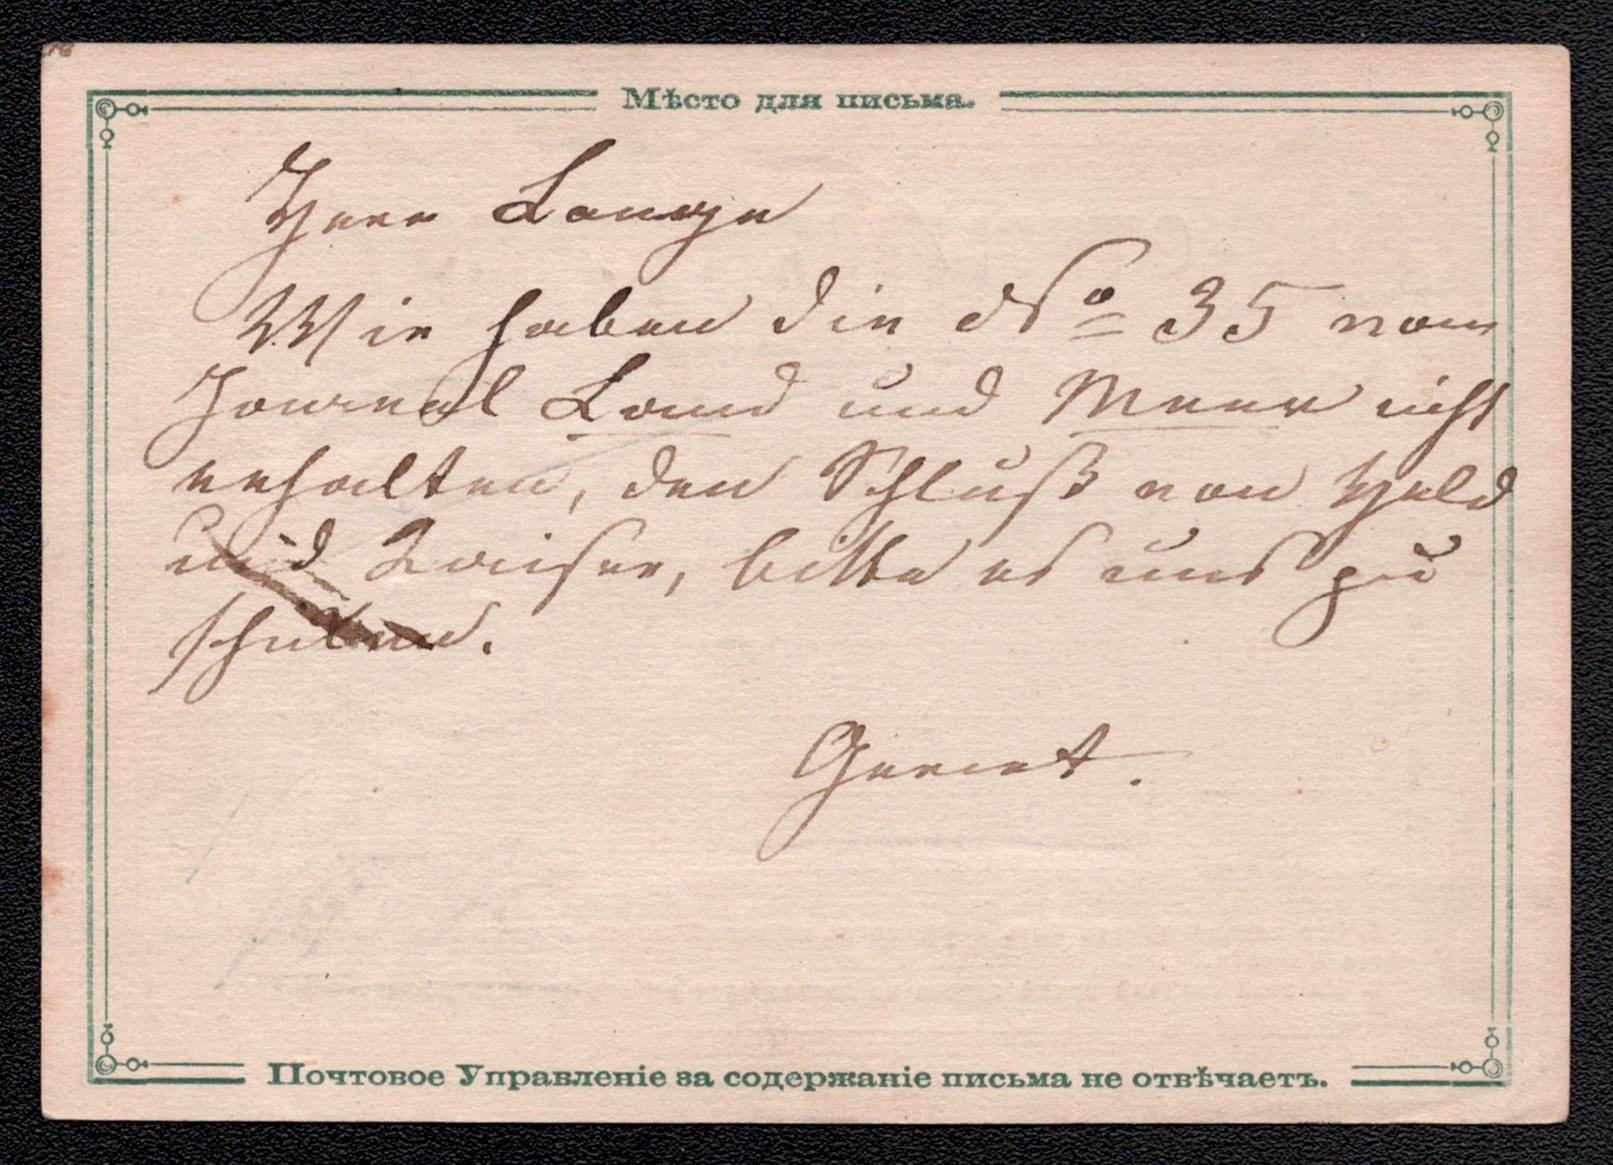 Мѣсто для письма.
Herr Lange
Wir haben die No 35 vom
Journal Land und Meer nicht
erhalten, den Schluß von Held
und Kaiser, bitte es uns zu
schicken.
Почтовое Управленіе за содержаніе письма не отвѣчаетъ.